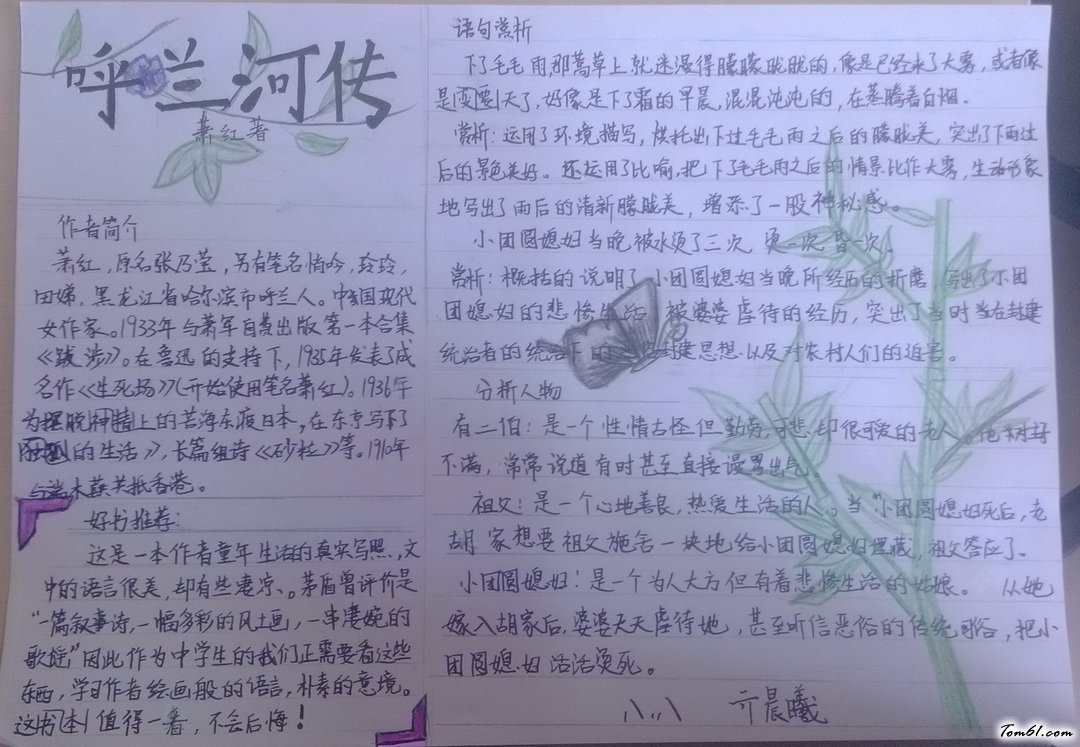 呼兰河传
萧红 著
作者简介
萧红,原名张乃莹,另有笔名悄吟,玲玲,
田娣,黑龙江省哈尔滨市呼兰人。中国现代
女作家。1933年与萧军自费出版第一本合集
《跋涉》。在鲁迅的支持下,1935年发表了成
名作《生死场》(开始使用笔名萧红)。1936年
为摆脱精神上的苦海东渡日本,在东京写下了
的生活》,长篇组诗《砂粒》等。1940年
与端木蕻共抵香港。
好书推荐:
这是一本作者童年生活的真实写照,文
中的语言很美,却有些凄凉、。茅盾曾评价是
“一篇叙事诗,一幅多彩的风土画,一串凄婉的
歌谣”因此作为中学生的我们正需要看这些
东西,学习作者绘画般的语言,朴素的意境。
这本书值得一看,不会后悔!
语句赏析
下了毛毛雨,那蒿草上就迷漫得朦朦胧胧的,像是已经来了大雾,或者像
是要变天了,好像是下了霜的早晨,混混沌沌的,在蒸腾着白烟。
赏析:运用了环境描写,烘托出下过毛毛雨之后的朦胧美,突出了下雨过
后的景色美好。还运用了比喻,把下了毛毛雨之后的情景比作大雾,生动形象
地写出了雨后的清新朦胧美,增添了一股神秘感。
小团圆媳妇当晚被水烫了三次,烫一次,昏一次。
赏析:概括的说明了小团圆媳妇当晚所经历的折磨,写出了小团
团媳妇的悲惨生活,被婆婆虐待的经历,突出了当时当在封建
统治者的统治下的封建思想以及对农村人们的迫害。
分析人物
有二伯:是一个性情古怪但勤劳,可悲却很可爱的老人。他
不满,常常说道有时甚至直接谩骂出气。
祖父:是一个心地善良,热爱生活的人。当“小团圆媳妇死后,老
胡家想要祖父施舍一块地给小团圆媳妇埋藏,祖父答应了。
小团圆媳妇:是一个为人大方但有着悲惨生活的姑娘。 从她
嫁入胡家后,婆婆天天虐待她,甚至听信恶俗的传统习俗,把小
团圆媳妇活活烫死。
晨曦
Tom61.com